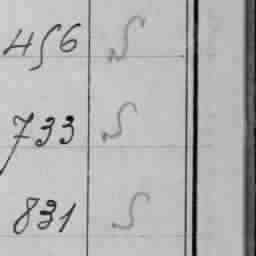 456 S
733 S
831 S